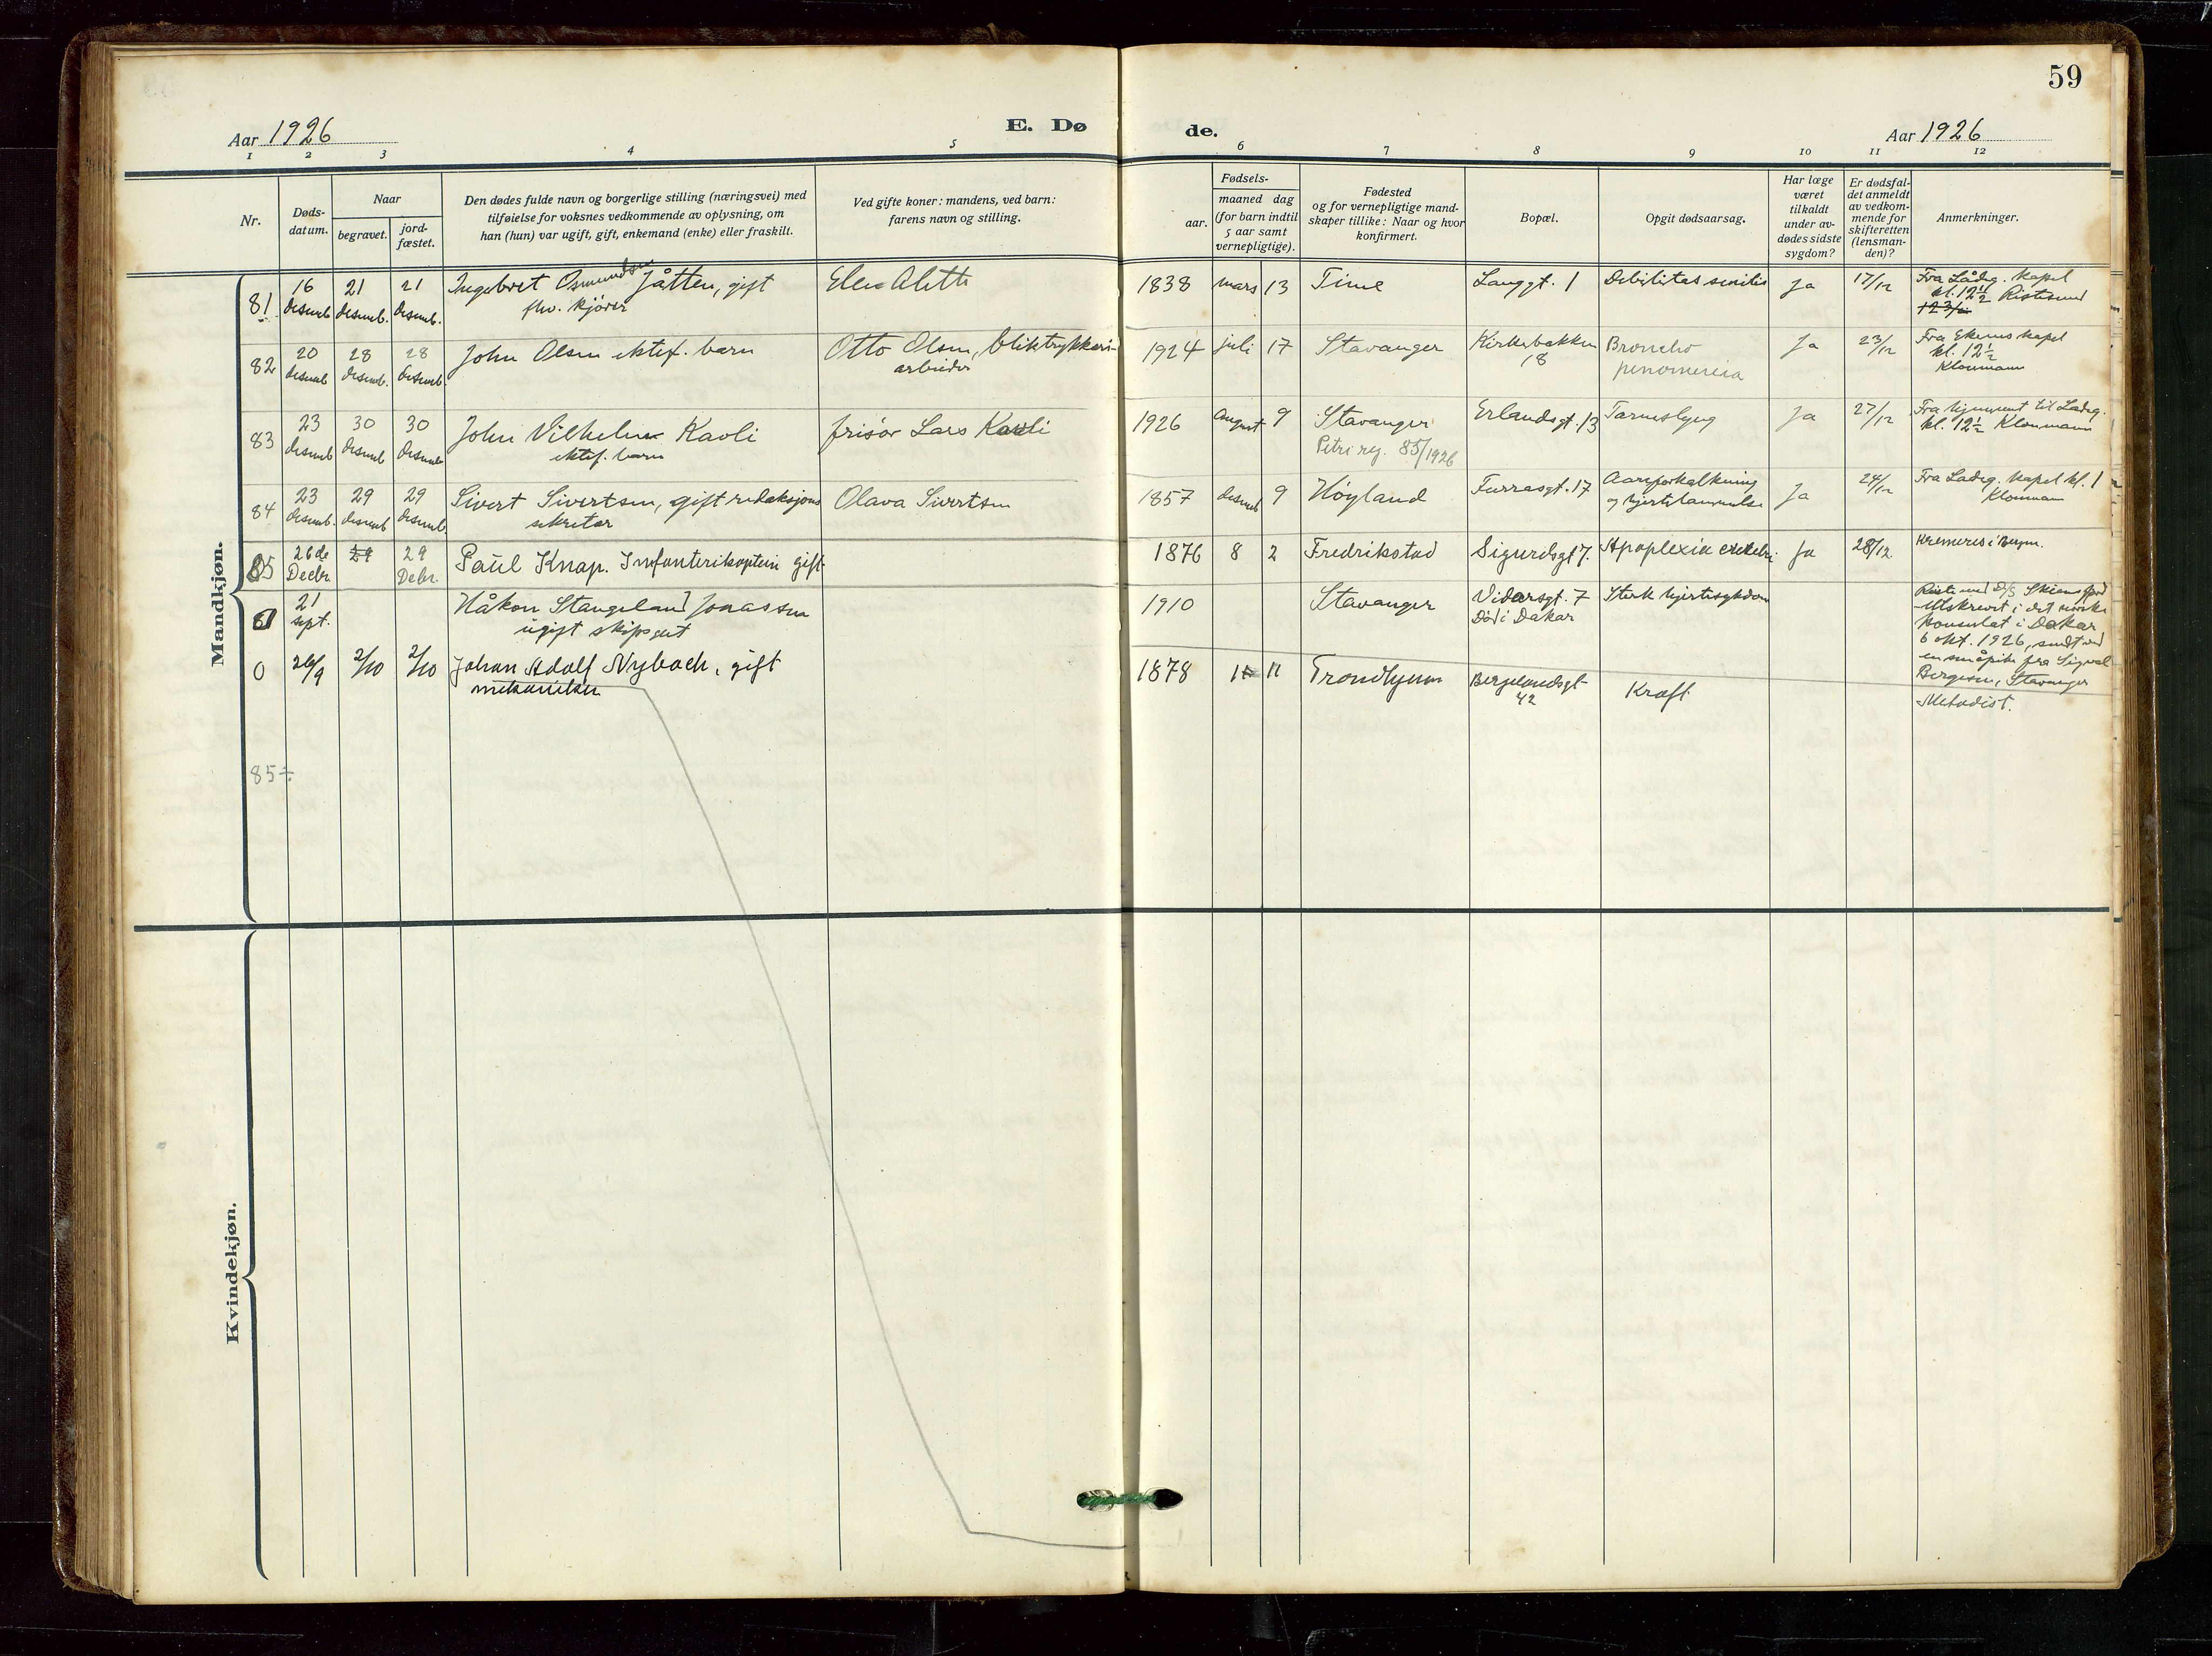 59
Aar 1926
E. Dø
de.
Aar 1926
1 2 3 4 5 6 7 8 9 10 11 12
Nr.
Døds-
datum.
Naar
begravet.
jord-
fæstet.
Den dødes fulde navn og borgerlige stilling (næringsvei) med
tilføielse for voksnes vedkommende av oplysning, om
han (hun) var ugift, gift, enkemand (enke) eller fraskilt.
Ved gifte koner: mandens, ved barn:
farens navn og stilling.
Fødsels-
aar.
maaned dag
(for barn indtil
5 aar samt
vernepligtige).
Fødested
og for vernepligtige mand-
skaper tillike: Naar og hvor
konfirmert.
Bopæl.
Opgit dødsaarsag.
Har læge
været
tilkaldt
under av-
dødes sidste
sygdom?
Er dødsfal-
det anmeldt
av vedkom-
mende for
skifteretten
(lensman-
den)?
Anmerkninger.
Mandkjøn.
81 16 desemb 21 desemb. 21 desemb.
Ingebret Osmundsen Jåtten, gift
fhv. kjører
1838 mars 13 Time Langgt. 1 Debilitas senilis Ja 17/12
Fra Lådeg. kapel
kl. 12½
82 20 desemb 28 desemb. 28 desemb.
John Olsen ektef. barn
Otto Olsen, bliktrykkeri-
arbeider
1924 juli 17 Stavanger Kirkebakken 18 Broncho Ja 23/12
Fra Ekenes kapel
kl. 12½
Kloumann
83 23 desemb 30 desemb 30 desemb
John Vilhelm Kavli
ektef. barn
frisør Lars Kavli
1926 august 9 Stavanger Erlandsgt. 13 Tarmslyng Ja 27/12
Petri reg. 85/1926
Fra hjemmet til Ladeg.
kl. 12½ Kloumann
84 23 desemb. 29 desemb 29 desemb.
Sivert Sivertsen, gift redaksjons
sekretær
Olava Sivertsen
1857 desemb 9 Høyland Furrasgt. 17 Aareforkalkning
og hjertelammelse Ja 24/12
Fra Ladeg. kapel kl. 1
Kloumann
85 26de Decbr. 29 29 Debr.
Paul Knap. Infanterikaptein gift
1876 8 2 Fredrikstad Sigurdsgt 7. Apoplexia cerebri Ja 28/12
Kremeres i Bergen.
21 sept.
Håkon Stangeland Jonassen
ugift skipsgut
1910 Stavanger Vidarsgt. 7
Død i Dakar
Sterk hjertesykdom
Utskrevet i det norske
Konsulat i Dakar
6 okt. 1926, sendt ved
Bergesen, Stavanger
0 26/9 2/10 2/10
Johan Adolf Nybach, gift
mekaniker
1878 11 Trondhjem Bergelandsgt
42
Kræft
Metodist.
85
Kvindekjøn.